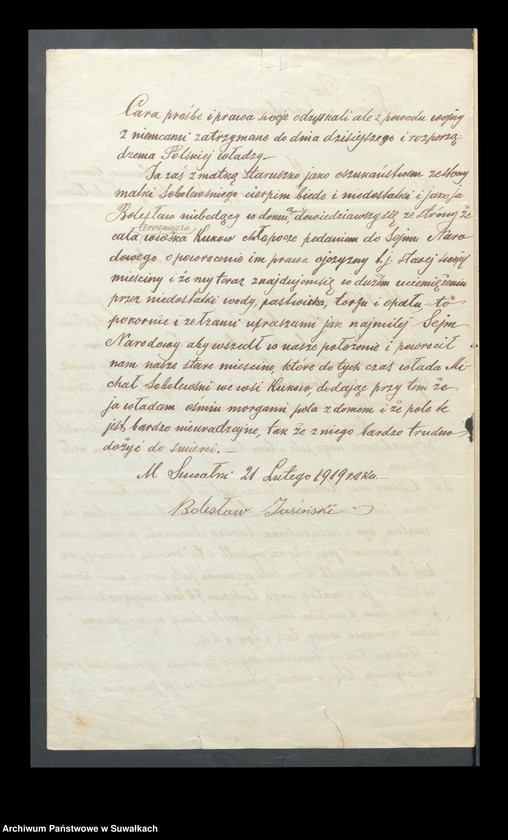 Cara prośbe i prawa swoje odzyskali ale z powodu wojny
z niemcami zatrzymane do dnia dzisiejszego i rozporzą-
dzenia Polskiej władzy.
Ja zaś z matką staruszko jako oszukaństwem ze strony
matki Sobolewskiego cierpim biede i niedostatki i ja
Bolesław niebędący w domu a dowiedziawszy się ze strony że
terazniejsza
cała wioska Kukow chłopocze podaniem do Sejmu Naro-
dowego o powrocenie im prawa ojczyzny t.j. starej swojej
mieściny i że my teraz znajdujemsię w dużim uciemiężeniu
przez niedostatki wody, pastwiska, torfu i opału to
pokornie i ze łzami upraszami jak najmilej Sejm
Narodowy aby wszedł w nasze położenie i powrocił
nam nasze stare miescine, które do tych czas włada Mi-
chał Sobolewski we wsi Kukow, dodając przy tem że
ja władam ośmiu morgami pola z domem i że pole te
jest bardzo nieurodzajne, tak że z niego bardzo trudno
dożyć do śmierci.
M Suwałki 21 Lutego 1919 roku.
Bolesław Jasiński
Archiwum Państwowe w Suwałkach